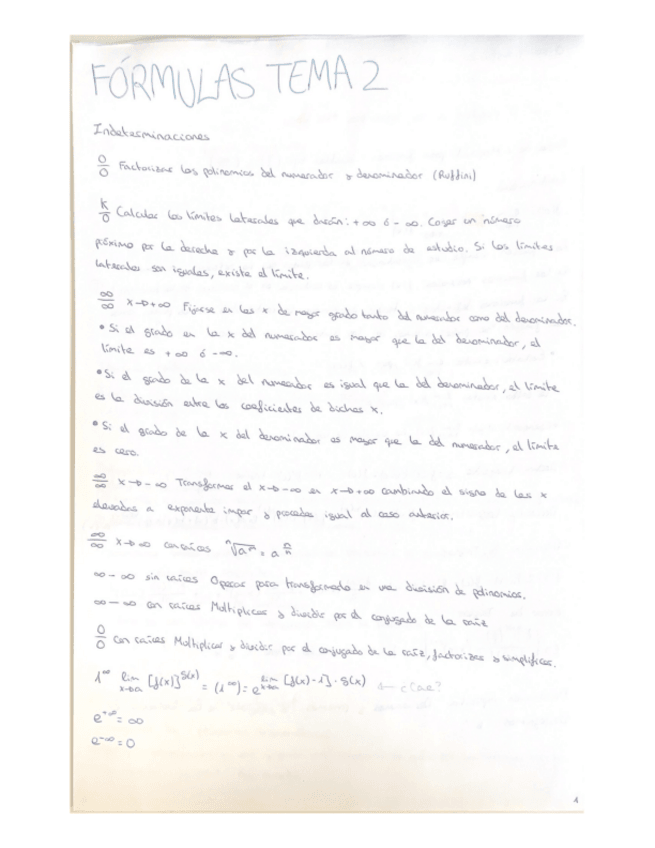 FÓRMULAS TEMA 2
Indeterminaciones
0/0 Factorizar los polinomios del numerador y denominador (Ruffini)
k/0 Calcular los límites laterales que darán: +∞ ó -∞. Coger un número
próximo por la derecha y por la izquierda al número de estudio. Si los límites
laterales son iguales, existe el límite.
∞/∞ x→+∞ Fijarse en las x de mayor grado tanto del numerador como del denominador.
• Si el grado en la x del numerador es mayor que la del denominador, el
límite es +∞ ó -∞.
• Si el grado de la x del numerador es igual que la del denominador, el límite
es la división entre los coeficientes de dichas x.
• Si el grado de la x del denominador es mayor que la del numerador, el límite
es cero.
∞/∞ x→-∞ Transformar el x→-∞ en x→+∞ cambiando el signo de las x
elevadas a exponente impar y proceder igual al caso anterior.
∞/∞ x→∞ con raíces ⁿ√aᵐ = a^(m/n)
∞-∞ sin raíces Operar para transformarlo en una división de polinomios.
∞-∞ con raíces Multiplicar y dividir por el conjugado de la raíz
0/0 con raíces Multiplicar y dividir por el conjugado de la raíz, factorizar y simplificar.
1^∞ lim x→a [f(x)]^g(x) = (1^∞) = e^lim x→a [f(x)-1]·g(x) ← ¿Cae?
e^+∞ = ∞
e^-∞ = 0
4